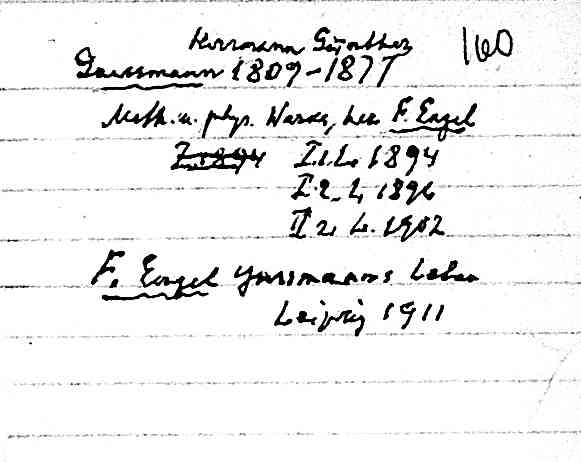 Hermann Günther 160
Grassmann 1809-1877
Math. u. phys. Werke, her. F. Engel
I. 1894 I.1. L. 1894
I.2. L. 1896
II 2. L. 1902
F. Engel Grassmanns Leben
Leipzig 1911